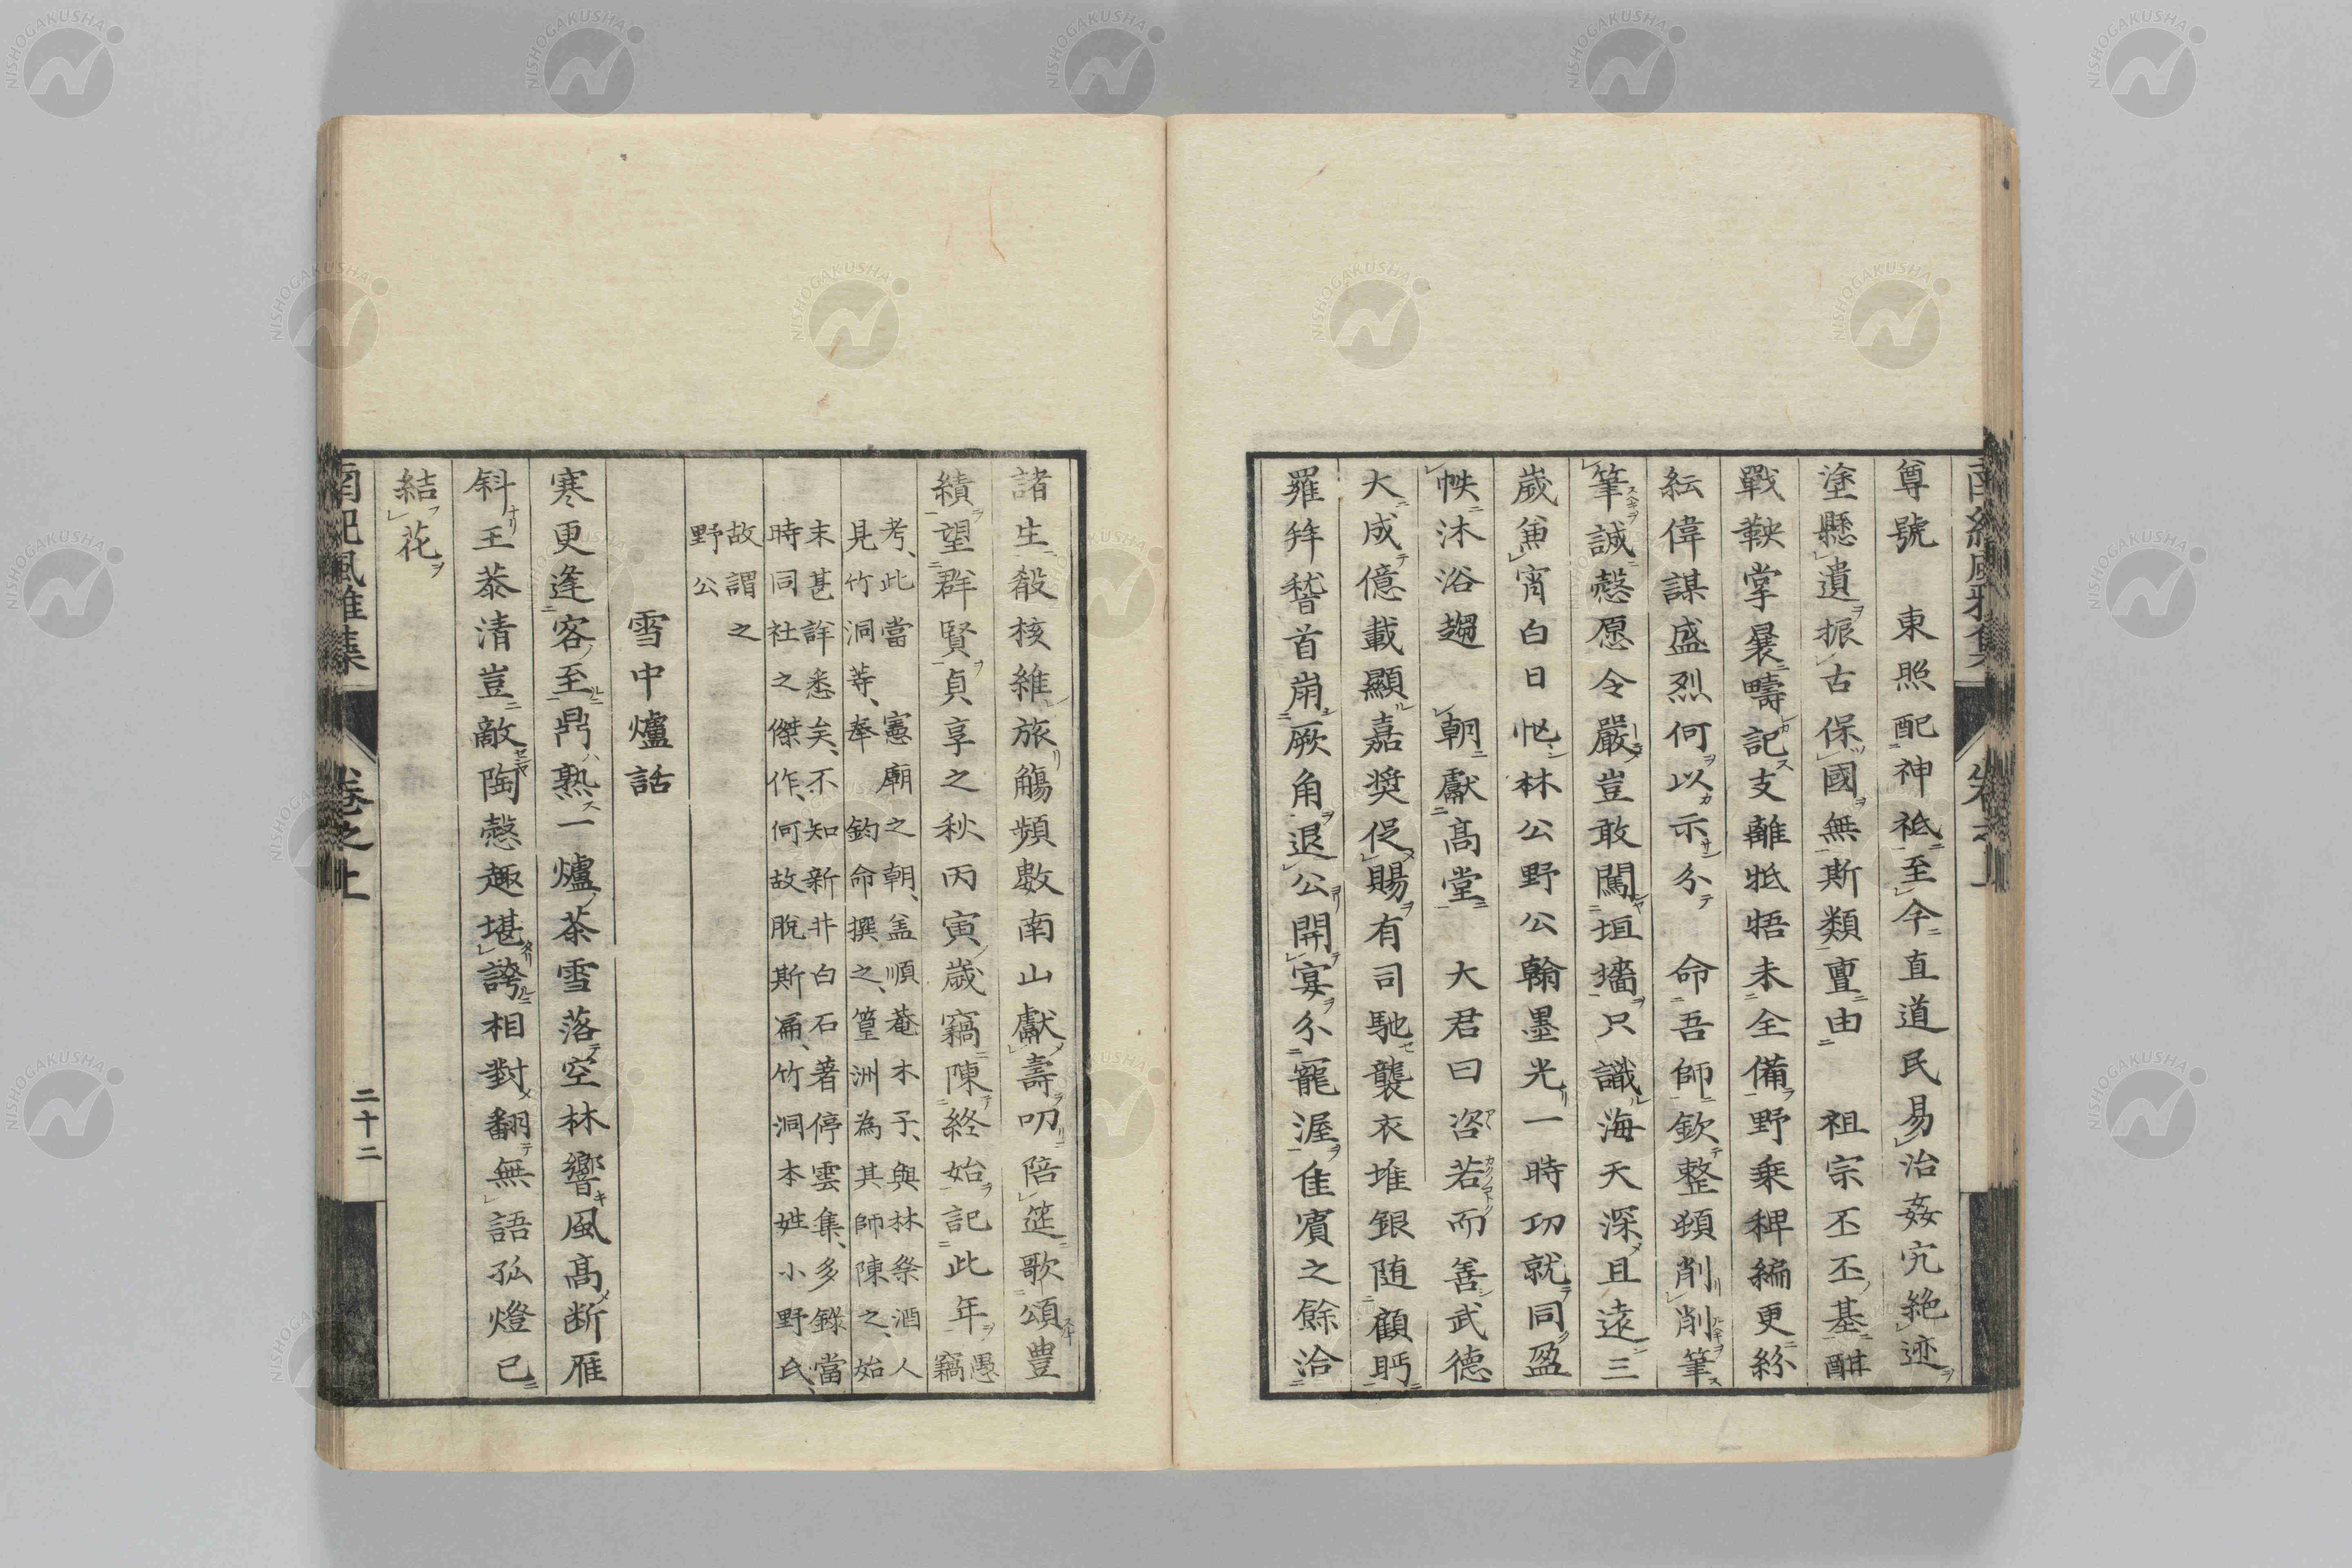 尊號　東照配神祗至今直道民易治姦宄絶迹
塗懸遺振古保國無斯類亶由　祖宗丕丕基酣
戰鞅掌曩疇記支離牴牾未全備野乗稗編更紛
紜偉謀盛烈何以示尒　命吾師欽整頓削削筆
筆誠慤愿令嚴豈敢闖垣墻只識海天深且遠三
歲兼宵白日怭林公野公翰墨光一時功就同盈
帙沐浴趨　朝獻髙堂　大君曰咨若而善武德
大成億載顯嘉奬促賜有司馳襲衣堆銀随顧眄
羅拜稽首崩厥角退公開宴尒寵渥隹賓之餘洽
南紀風雅集　卷之上
諸生殽核維旅觴頻數南山獻壽叨陪筵歌頌豊
績望群賢貞享之秋丙寅歲竊陳終始記此年　愚竊
考、此當　憲廟之朝、盖順菴木子、與林祭酒人
見竹洞等、奉　鈞命撰之、篁洲為其師陳之、始
末甚詳悉矣、不知新井白石著停雲集、多錄當
時同社之傑作、何故脫斯扁、竹洞本姓小野氏、
故謂之
野公
雪中爐話
寒更逢客至鼎熟一爐茶雪落空林響風髙断雁
斜王恭清豈敵陶慤趣堪誇相對翻無語孤燈已
結花
南紀風雅集　卷之上　二十二
NISHOGAKUSHA